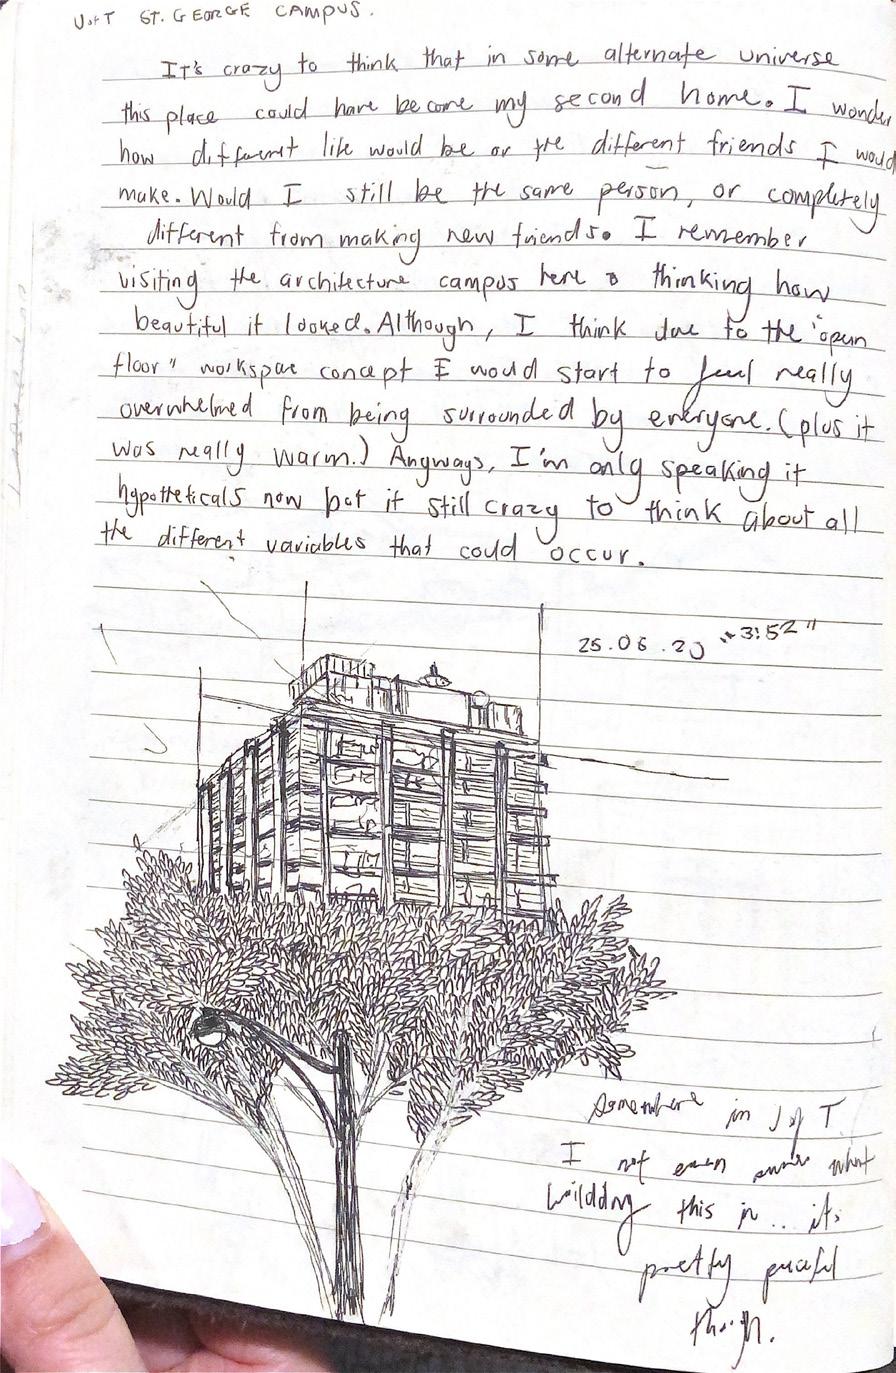 U of T ST. GEORGE CAMPUS.
It's crazy to think that in some alternate universe
this place could have become my second home. I wonder
how different life would be or the different friends I would
make. Would I still be the same person, or completely
different from making new friends. I remember
visiting the architecture campus here & thinking how
beautiful it looked. Although, I think due to the "open
floor" workspac concept I would start to feel really
overwhelmed from being surrounded by everyone. (plus it
was really warm.) Anyways, I'm only speaking it
hypotheticals now but it still crazy to think about all
the different variables that could occur.
25.06.20 "3:52"
Somewhere in U of T
I not even sure what
building this is... its
pretty peaceful
though.